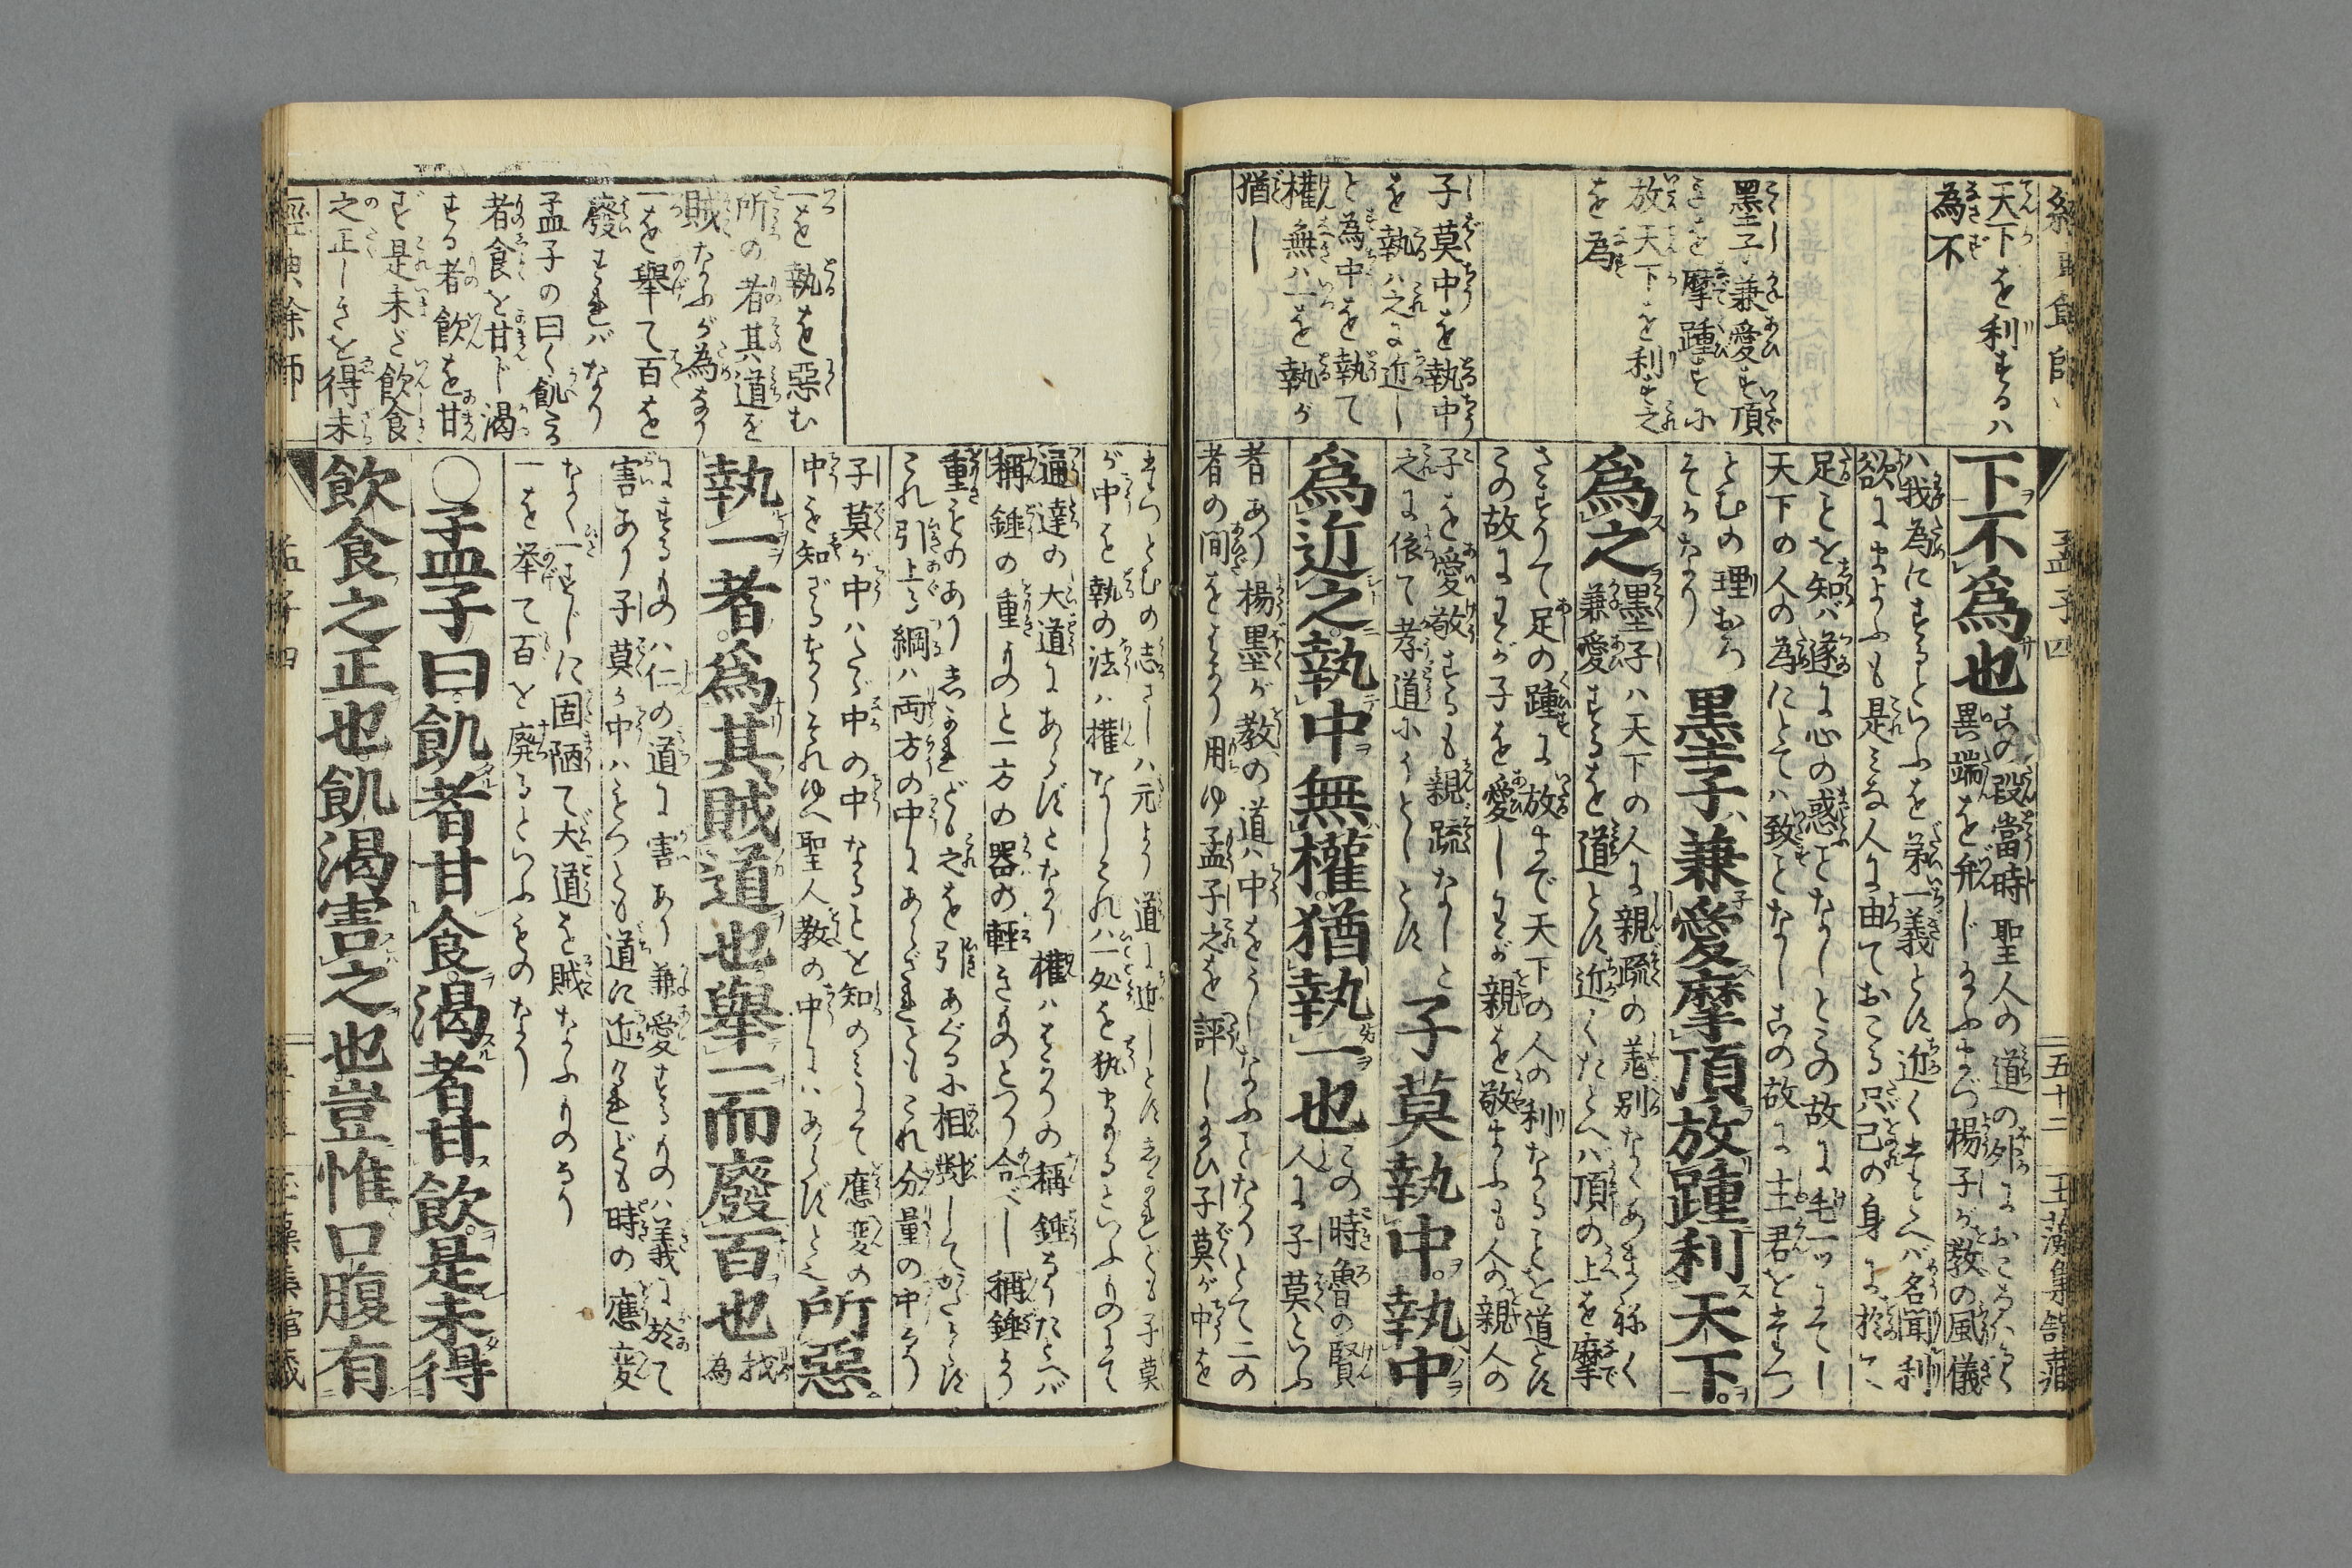 天下を利するハ
為不
墨子兼愛す頂
を摩踵す
放天下を利す之
を為
子莫中を執中
を執ハ之に近し
と為中を執て
權無ハ一を執が
猶し
孟子四
五十二
下不為也
この段當時聖人の道の外におこる
異端を弁じ給ふまづ楊子が教の風儀
ハ我為にするといふを第一義とす近くたとへバ名聞利
欲にまよふも是みな人に由ておこる只己の身に於に
足ことを知バ遂に心の惑ことなしとこの故に毛一ッにてし
天下の人の為にとてハ致ことなしこの故に主君をたつ
とむの理おろ
そかなり
墨子兼愛摩頂放踵利天下
為之
墨子ハ天下の人に親疏の差別なくあまねく
兼愛するを道とす近くたとへバ頂の上を摩
さすりて足の踵に放まで天下の人の利なることを道とす
この故にわが子を愛しわが親を敬まふも人の親人の
子を愛敬するも親疏なしと
之に依て孝道
子莫執中執中
為近之執中無權猶執一也
この時魯の賢
人に子莫といふ
者あり楊墨が教の道ハ中をうしなふことなりとて二の
者の間をはかり用ゆ孟子之を評し給ひ子莫が中を
一を執を惡む
所の者其道を
賊なふが為なり
一を舉て百を
廢すれバなり
孟子の曰く飢る
者食を甘し渴
する者飲を甘
す是未だ飲食
之正しきを得未
たつとむの志さしハ元より道に近しとすされども子莫
が中を執の法ハ權なしこれハ一処を執まもるといふものにて
通達の大道にあらずとなり權ハはかりの稱錘なりたとへバ
稱錘の重りのと一方の器の軽きものとつり合べし稱錘より
重きものありしかれども之を引あぐるに相對してかたよらず
これ引上る綱ハ両方の中にあらざれどもこれ分量の中なり
子莫が中ハたゞ中の中なることを知のミにて應変の
中を知ざるなりそれゆへ聖人教の中にハあらずと也
所惡
執一者為其賊道也舉一而廢百也
我
為
にするものハ仁の道に害あり兼愛するものハ義に於て
害あり子莫が中ハもつとも道に近けれども時の應変
なく一すじに固陋て大道を賊なふものなり
一を挙て百を廃るといふものなり
○孟子曰飢者甘食渴者甘飲是未得
飲食之正也飢渴害之也豈惟口腹有
經典餘師
孟子四